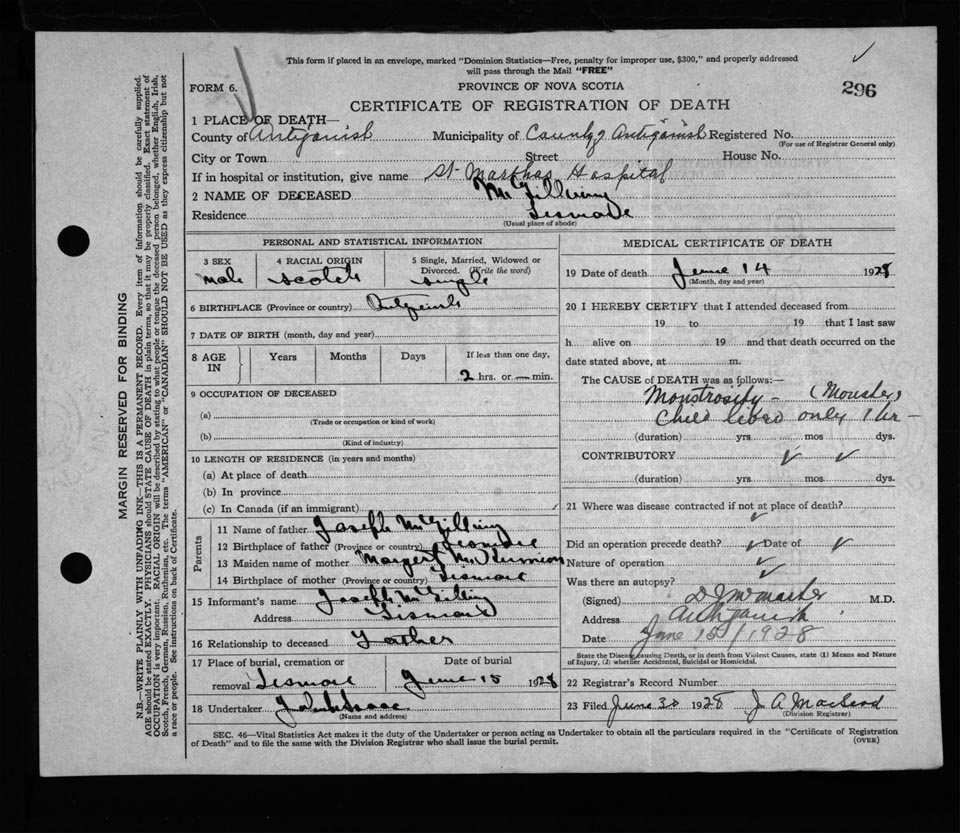 This form if placed in an envelope, marked "Dominion Statistics—Free, penalty for improper use, $300," and properly addressed
will pass through the Mail "FREE"
296
FORM 6.
PROVINCE OF NOVA SCOTIA
CERTIFICATE OF REGISTRATION OF DEATH
1 PLACE OF DEATH—
County of Antigonish Municipality of County of Antigonish Registered No.
(For use of Registrar General only)
City or Town Street House No.
If in hospital or institution, give name St. Marthas Hospital
2 NAME OF DECEASED McGillivray
Residence Lismore
(Usual place of abode)
PERSONAL AND STATISTICAL INFORMATION
3 SEX 4 RACIAL ORIGIN 5 Single, Married, Widowed or
Divorced. (Write the word)
male scotch single
6 BIRTHPLACE (Province or country) Antigonish
7 DATE OF BIRTH (month, day and year)
8 AGE IN Years Months Days If less than one day,
2 hrs. or — min.
9 OCCUPATION OF DECEASED
(a)
(Trade or occupation or kind of work)
(b)
(Kind of industry)
10 LENGTH OF RESIDENCE (in years and months)
(a) At place of death
(b) In province
(c) In Canada (if an immigrant)
Parents
11 Name of father Joseph McGillivray
12 Birthplace of father (Province or country) Lismore
13 Maiden name of mother
14 Birthplace of mother (Province or country) Lismore
15 Informant's name Joseph McGillivray
Address Lismore
16 Relationship to deceased Father
17 Place of burial, cremation or Date of burial
removal Lismore June 15 1928
18 Undertaker
(Name and address)
MEDICAL CERTIFICATE OF DEATH
19 Date of death June 14 1928
(Month, day and year)
20 I HEREBY CERTIFY that I attended deceased from
19 to 19 that I last saw
h alive on 19 and that death occurred on the
date stated above, at m.
The CAUSE OF DEATH was as follows:—
Monstrosity – (Monster)
Child lived only 1 hr –
(duration) yrs. mos. dys.
CONTRIBUTORY ✓ ✓
(duration) yrs. mos. dys.
21 Where was disease contracted if not at place of death?
✓
Did an operation precede death? ✓ Date of ✓
Nature of operation ✓
Was there an autopsy? ✓
(Signed) M.D.
Address Antigonish
Date June 15/1928
State the Disease causing Death, or in death from Violent Causes, state (1) Means and Nature
of Injury, (2) whether Accidental, Suicidal or Homicidal.
22 Registrar's Record Number
23 Filed June 30 1928 J A MacLeod
(Division Registrar)
SEC. 46—Vital Statistics Act makes it the duty of the Undertaker or person acting as Undertaker to obtain all the particulars required in the "Certificate of Registration
of Death" and to file the same with the Division Registrar who shall issue the burial permit.
(OVER)
MARGIN RESERVED FOR BINDING
N.B.—WRITE PLAINLY WITH UNFADING INK—THIS IS A PERMANENT RECORD. Every item of information should be carefully supplied.
AGE should be stated EXACTLY. PHYSICIANS should STATE CAUSE OF DEATH in plain terms, so that it may be properly classified. Exact statement of
OCCUPATION is very important. RACIAL ORIGIN will be described by stating to what people or tongue the deceased person belonged, whether English, Irish,
Scotch, French, German, Russian, Ruthenian, etc. The terms "AMERICAN" or "CANADIAN" SHOULD NOT BE USED as they express citizenship but not
a race or people. See instructions on back of Certificate.